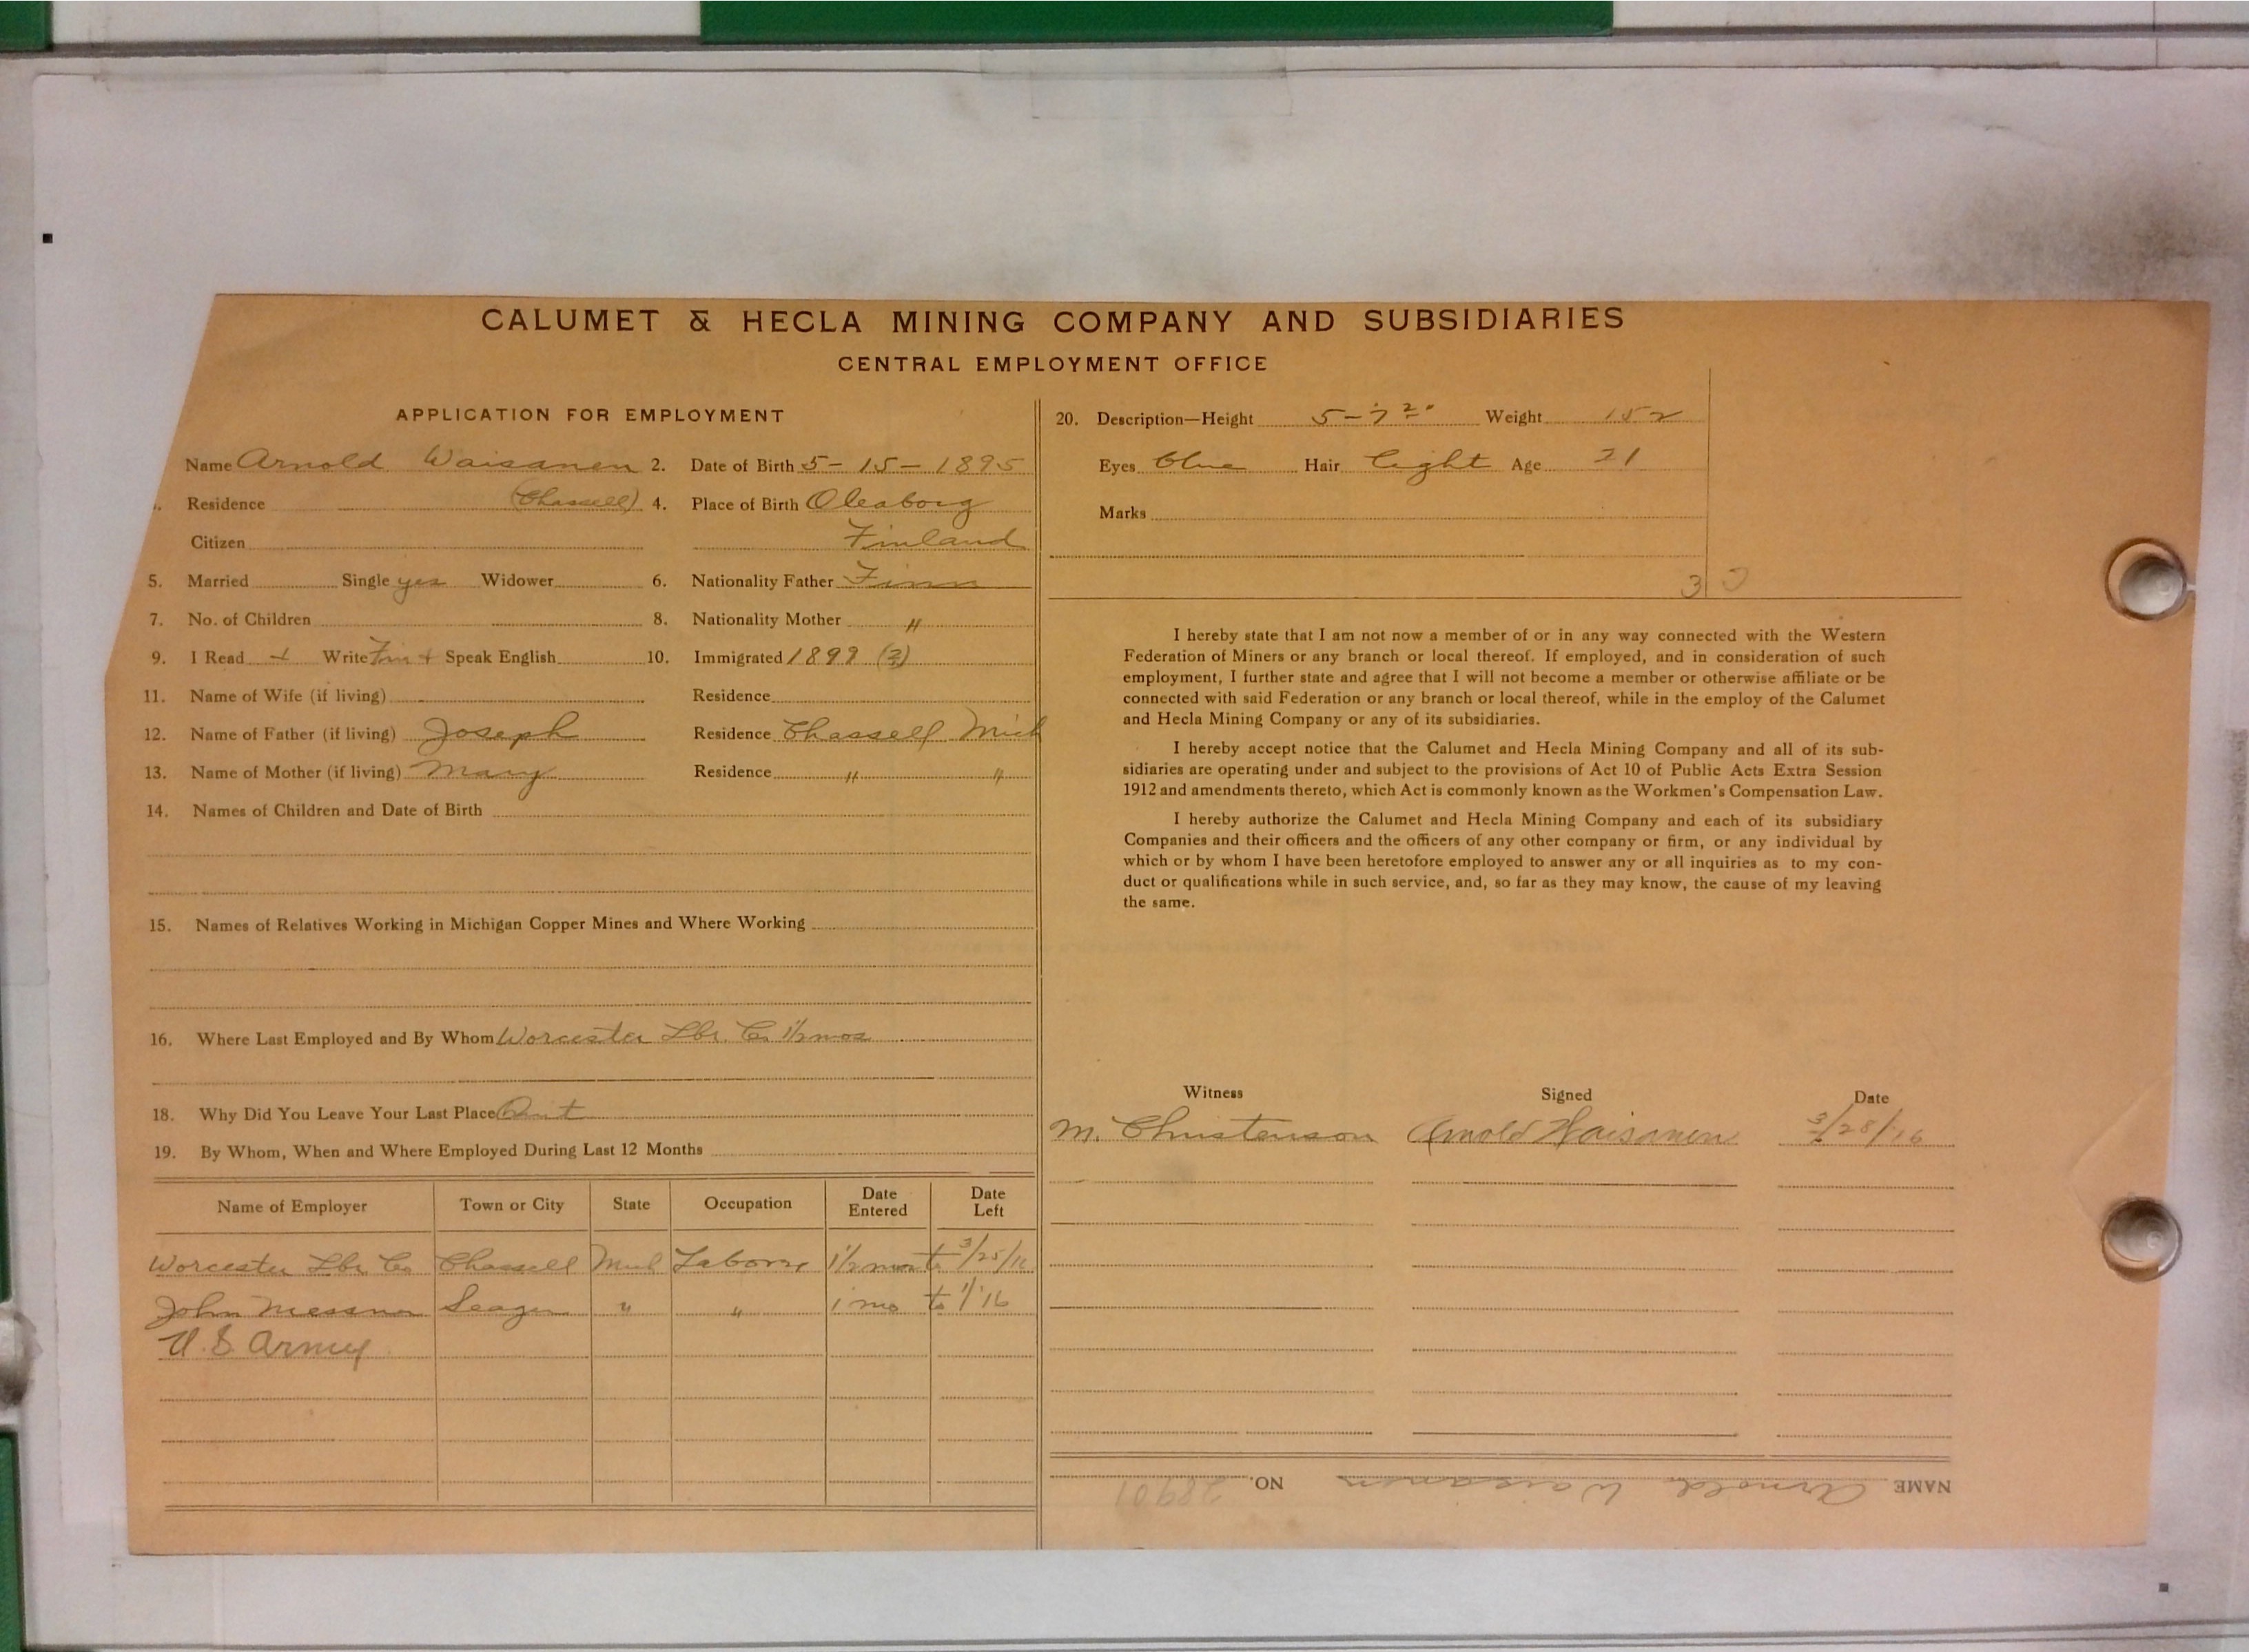 CALUMET & HECLA MINING COMPANY AND SUBSIDIARIES
CENTRAL EMPLOYMENT OFFICE
APPLICATION FOR EMPLOYMENT
Name Arnold Waisanen 2. Date of Birth 5-15-1895
Residence (Chassell) 4. Place of Birth Oleaborg
Citizen Finland
5. Married Single yes Widower 6. Nationality Father Finn
7. No. of Children 8. Nationality Mother "
9. I Read + Write Finn + Speak English 10. Immigrated 1899 (3)
11. Name of Wife (if living) Residence
12. Name of Father (if living) Joseph Residence Chassell Mich
13. Name of Mother (if living) Mary Residence " "
14. Names of Children and Date of Birth
15. Names of Relatives Working in Michigan Copper Mines and Where Working
16. Where Last Employed and By Whom Worcester Lbr. Co. 1½ mos
18. Why Did You Leave Your Last Place Quit
19. By Whom, When and Where Employed During Last 12 Months
Name of Employer Town or City State Occupation Date Entered Date Left
Worcester Lbr Co Chassell Mich Laborer 1½ mos to 3/25/16
John Messner Seager " " 1 mo to 1/16
U.S Army
20. Description—Height 5-7 Weight 152
Eyes blue Hair light Age 21
Marks
3
I hereby state that I am not now a member of or in any way connected with the Western
Federation of Miners or any branch or local thereof. If employed, and in consideration of such
employment, I further state and agree that I will not become a member or otherwise affiliate or be
connected with said Federation or any branch or local thereof, while in the employ of the Calumet
and Hecla Mining Company or any of its subsidiaries.
I hereby accept notice that the Calumet and Hecla Mining Company and all of its sub-
sidiaries are operating under and subject to the provisions of Act 10 of Public Acts Extra Session
1912 and amendments thereto, which Act is commonly known as the Workmen's Compensation Law.
I hereby authorize the Calumet and Hecla Mining Company and each of its subsidiary
Companies and their officers and the officers of any other company or firm, or any individual by
which or by whom I have been heretofore employed to answer any or all inquiries as to my con-
duct or qualifications while in such service, and, so far as they may know, the cause of my leaving
the same.
Witness Signed Date
M. Christenson Arnold Waisanen 3/28/16
NAME Arnold Waisanen NO. 28901